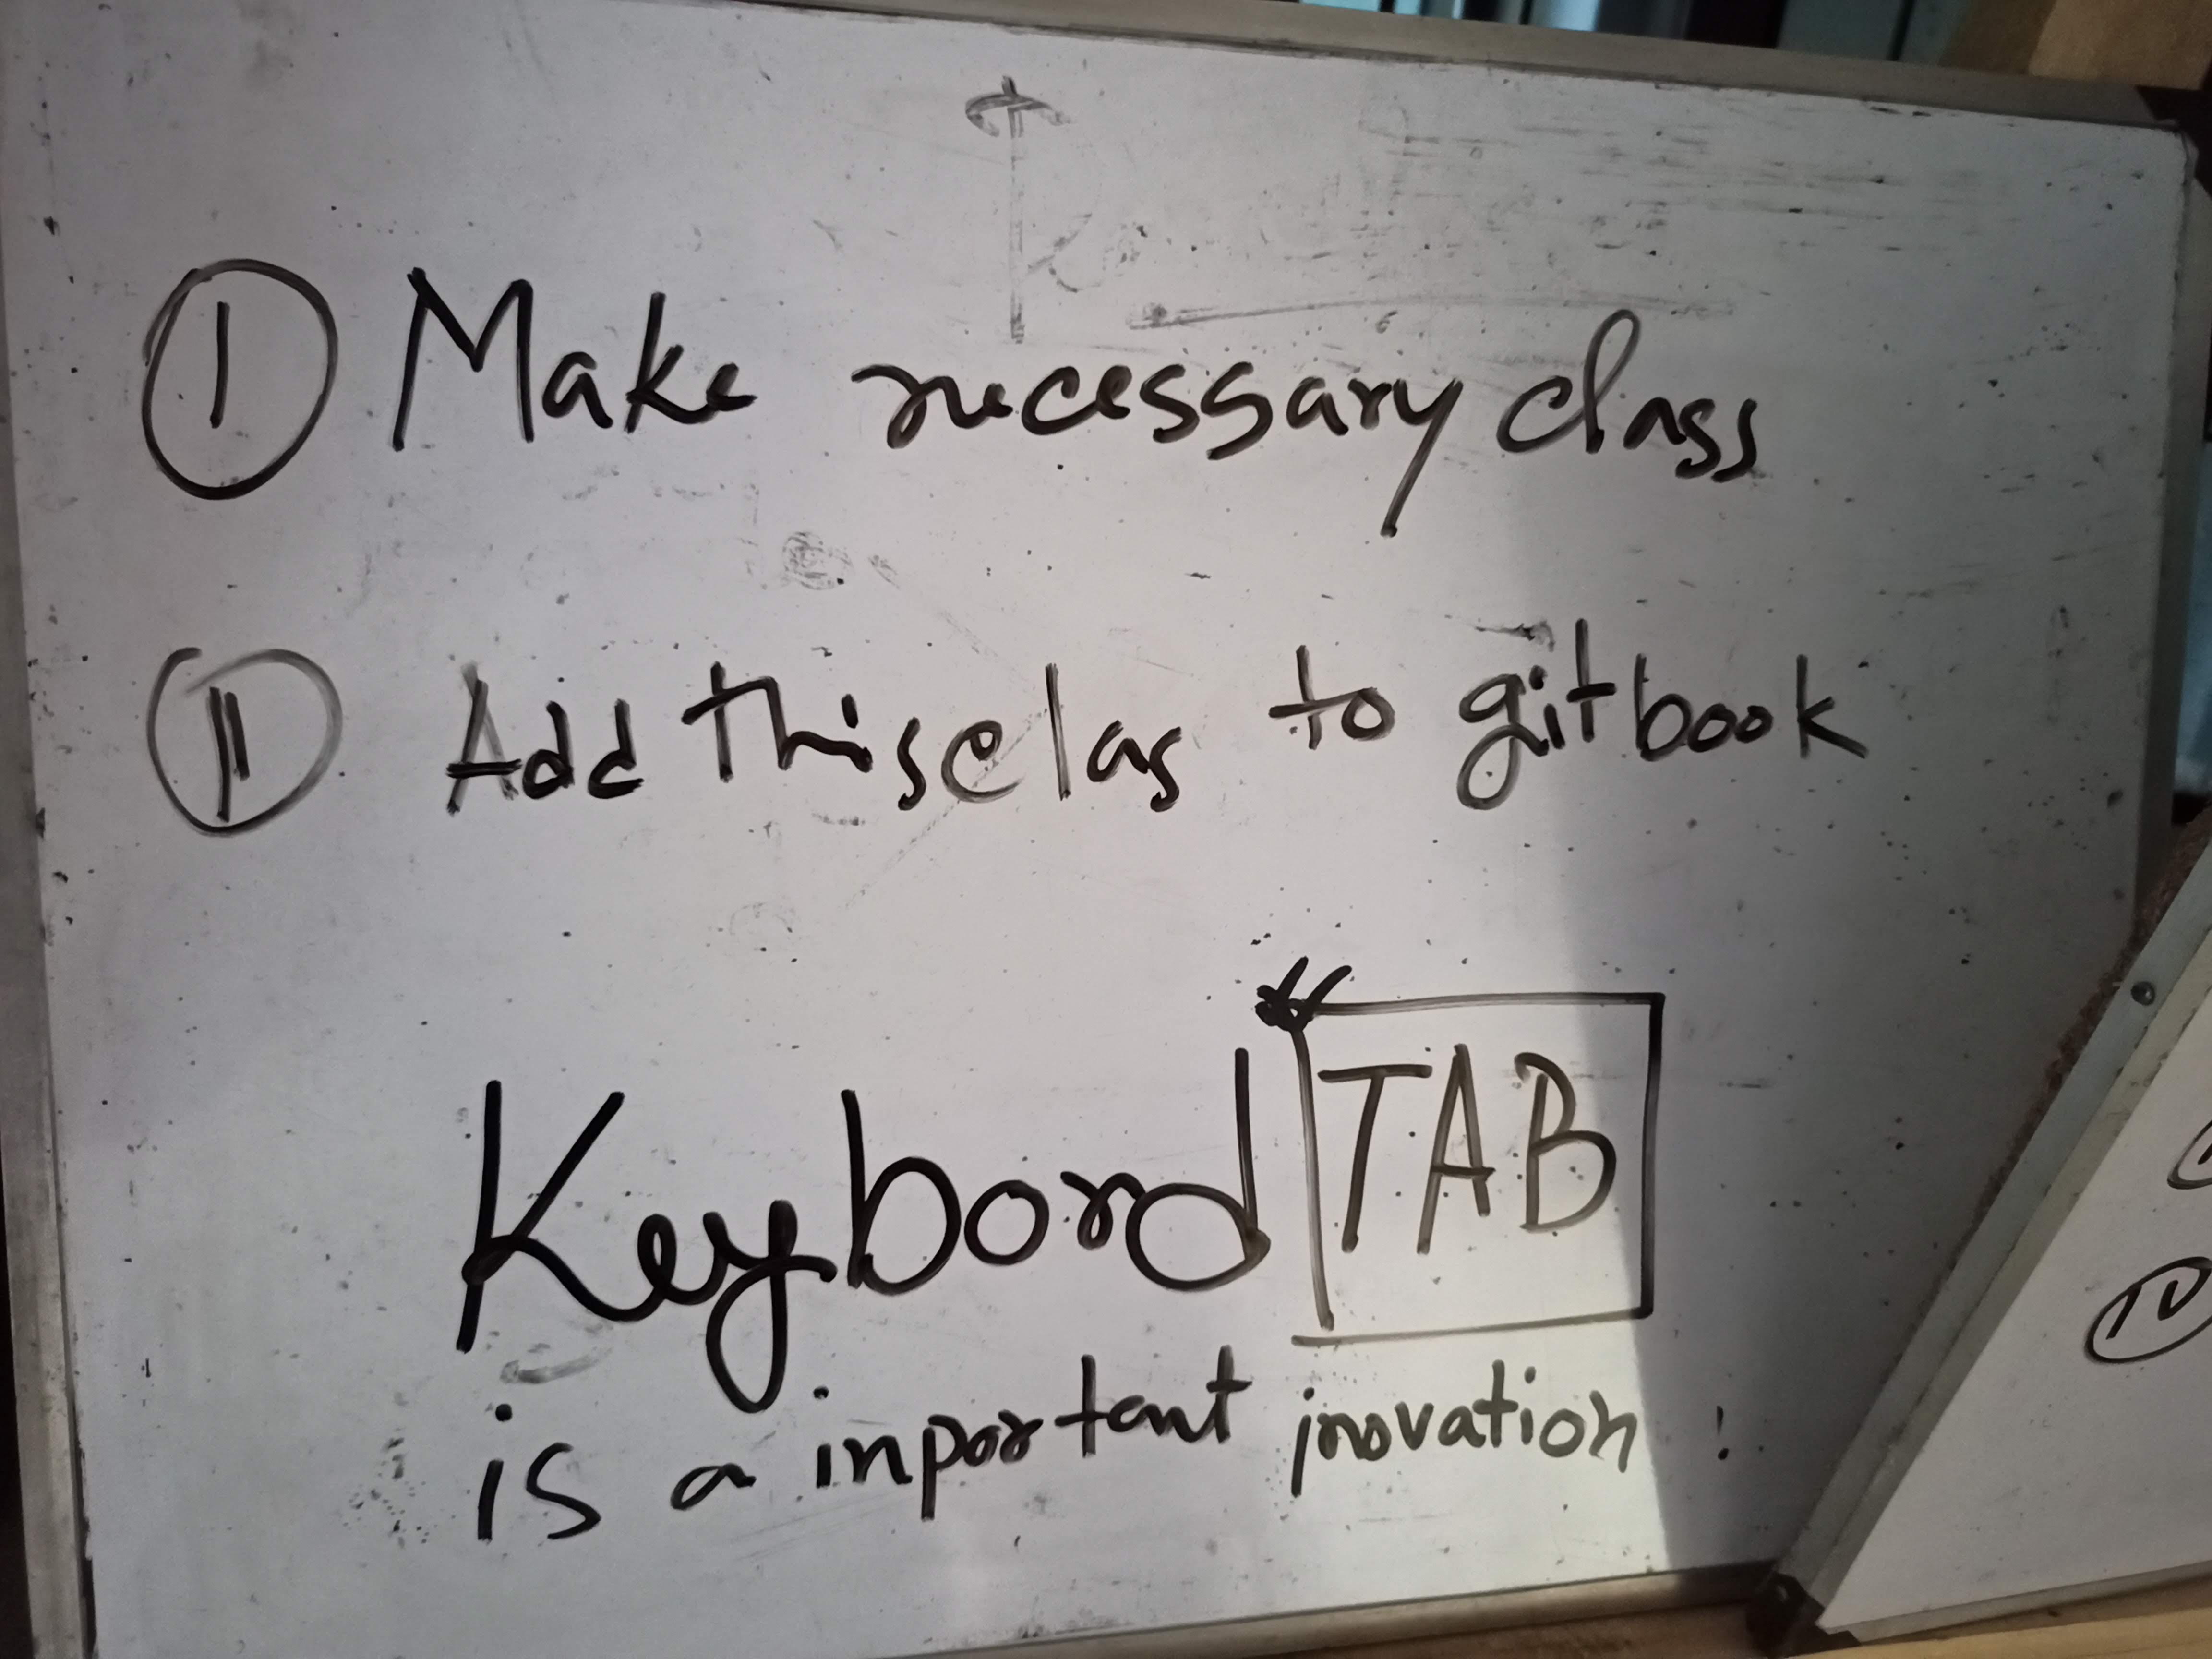 I Make necessary class
II Add this clas to gitbook
Keybord TAB
is a inportant inovation !
IV